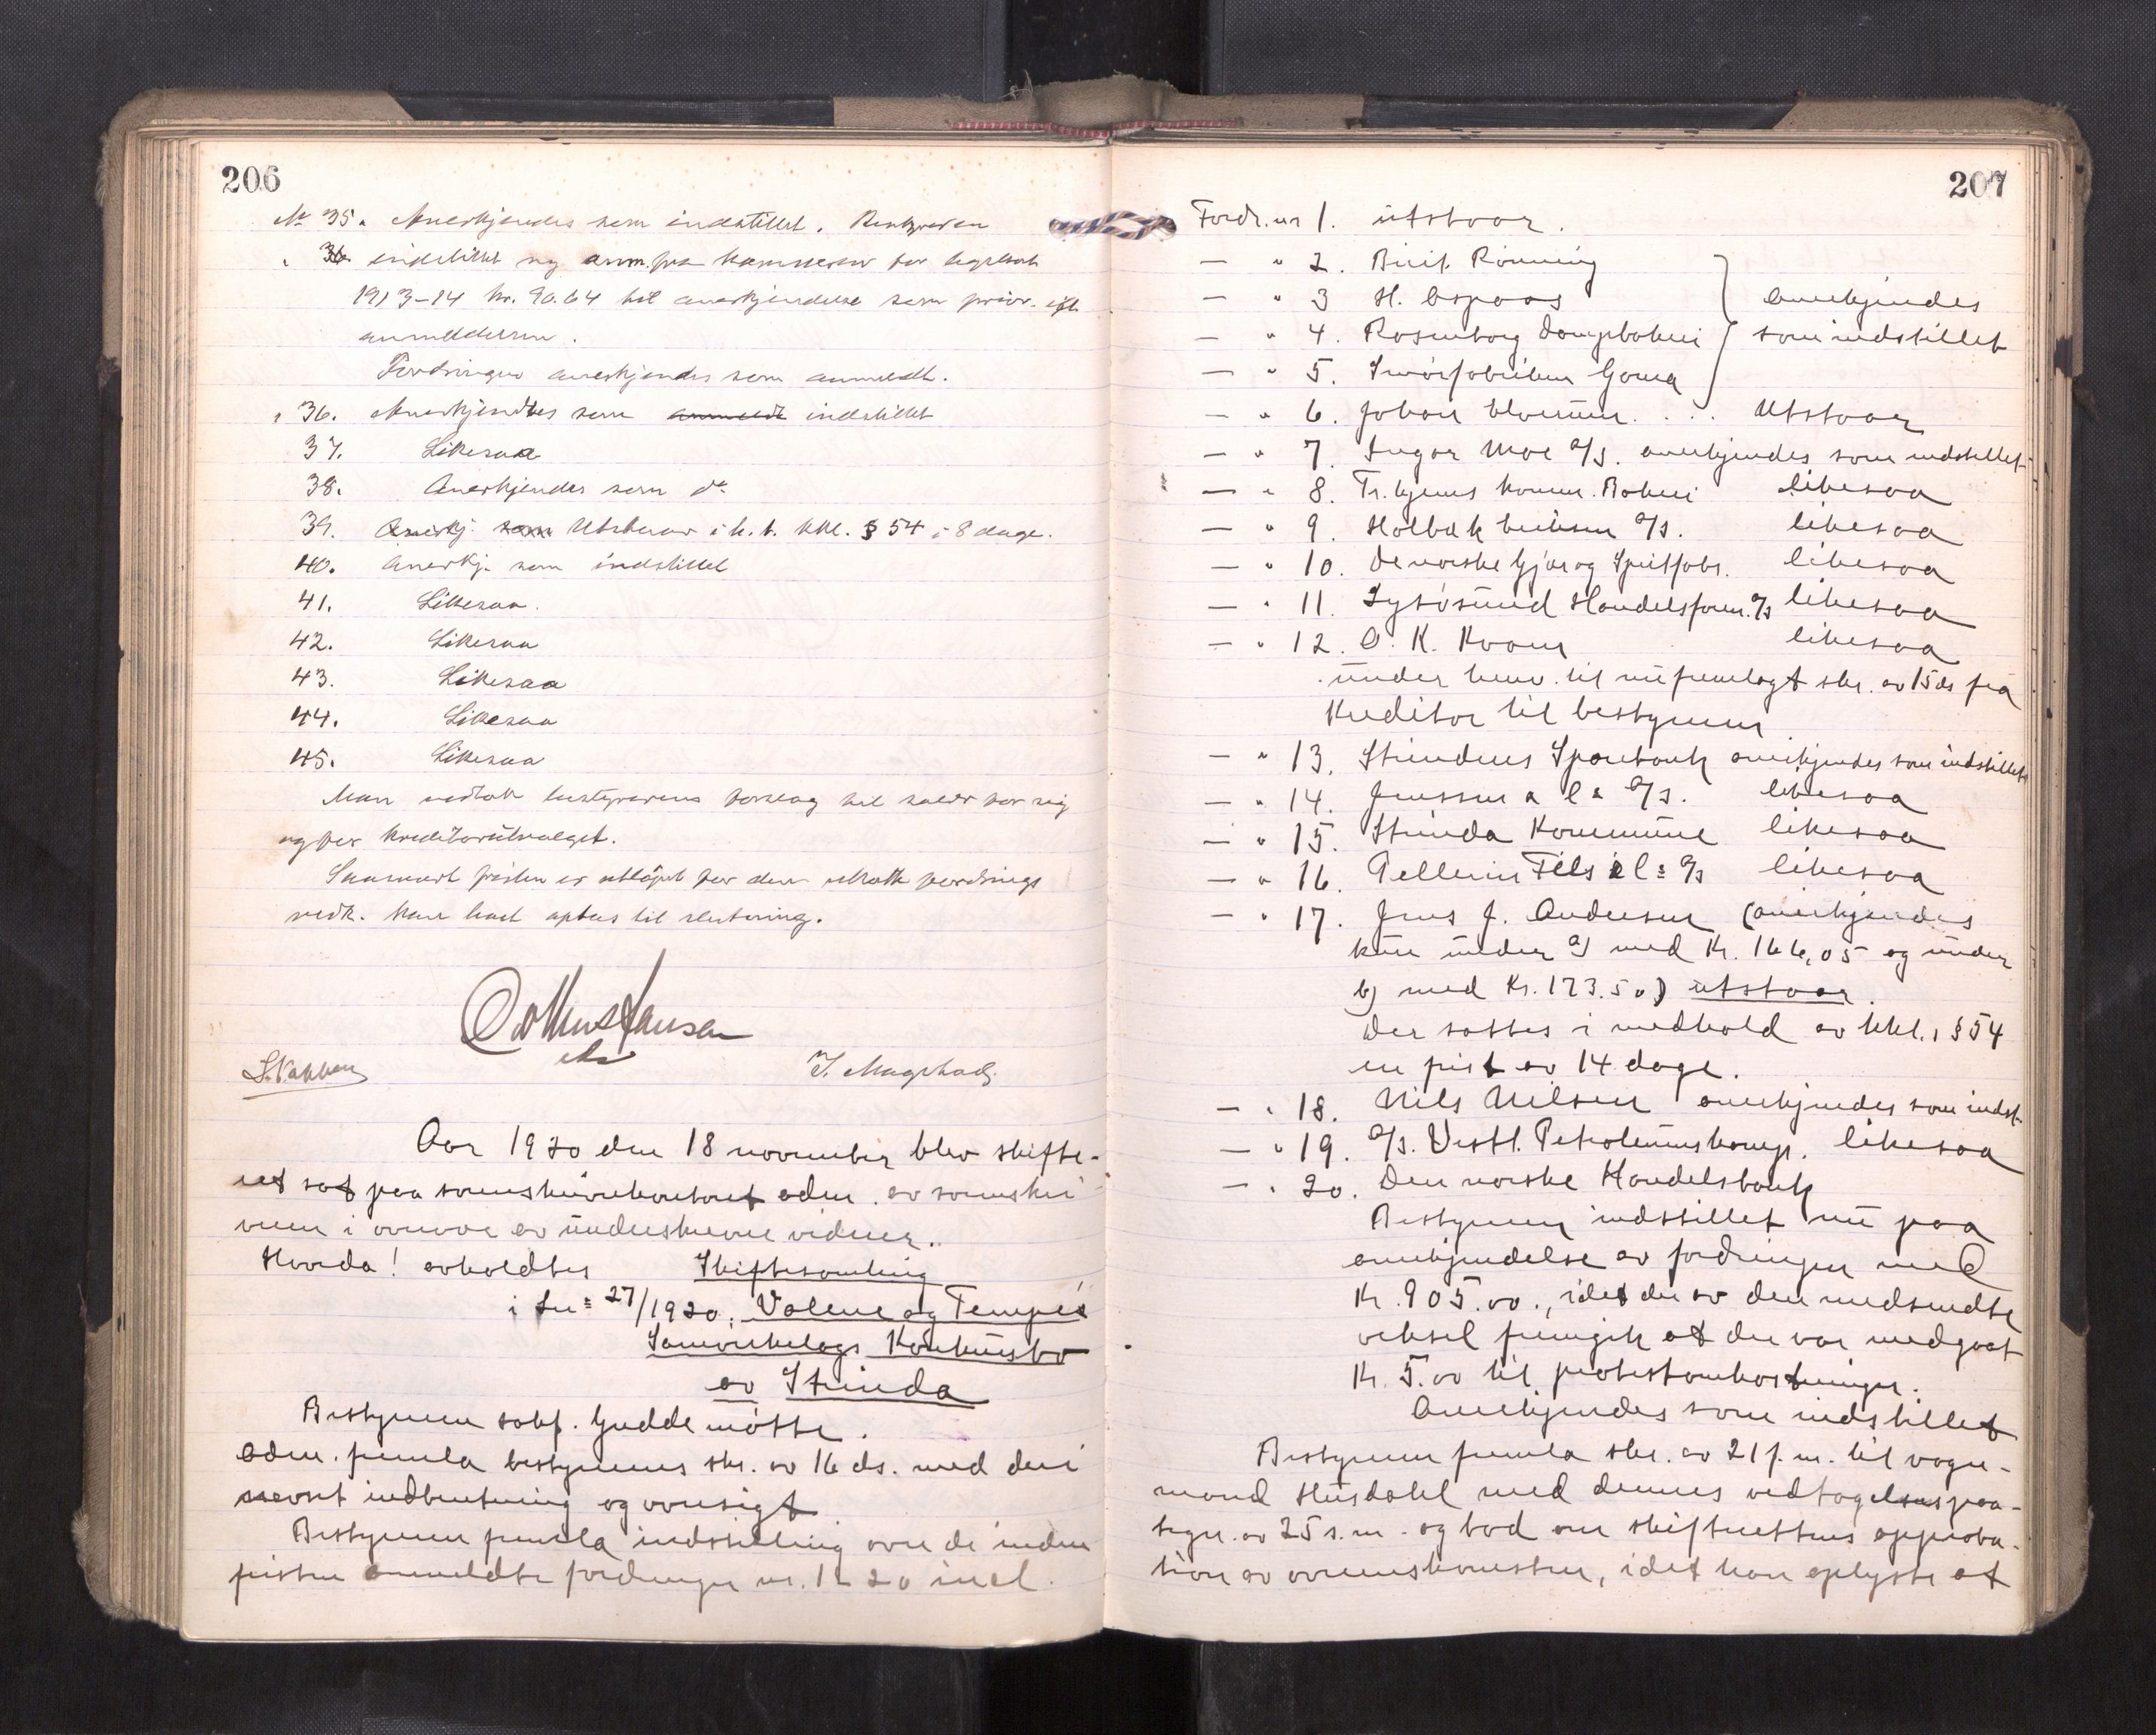 206
No 35. Anerkjendes som indstillet. Bestyreren
" 36. indstillet ny anm. fra kæmneren for
1913-14 kr. 90.64 til anerkjendelse som prior. eft.
anmeldelsen.
Fordringen anerkjendes som anmeldt.
" 36. Anerkjendtes som anmeldt indstillet
37. Likesaa
38. Anerkjendes som do.
39. Anerkj. som Utstaar i h. t. kkl. § 54 i 8 dage.
40. Anerkj. som indstillet
41. Likesaa.
42. Likesaa
43. Likesaa
44. Likesaa
45. Likesaa
Man vedtok bestyrerens forslag til salær for sig
og for kreditorutvalget.
Saasnart fristen er utløpet for den utsatte fordrings
vedk. kan boet optas til slutning.
J. Magstad
Aar 1920 den 18 november blev skifte-
ret sat paa sorenskriverkontoret adm. av sorenskri
veren i overvær av underskrevne vidner..
Hvorda! avholdtes Skiftesamling
i Lnr 27/1920: Valene og Tempes
Samvirkelags Konkursbo
av Strinda
Bestyreren sakf. Gudde møtte.
Adm. fremla bestyrerens skr. av 16 ds. med deri
nævnt indberetning og oversigt
Bestyreren fremla indstilling over de inden
fristen anmeldte fordringer nr. 1 - 20 incl.
207
Fordr. nr 1. utstaar.
— " 2. Birit Rønning
— " 3 H. Aspaas } anerkjendes
— " 4. Rosenborg Dampbakeri } som indstillet
— " 5. Smørfabrikken Goma
— " 6. Johan Clausen. . . . Utstaar
— " 7. Ingar Moe A/S. anerkjendes som indstillet
— " 8. Tr.hjems komm. Bakeri likesaa
— " 9. Holbæk Eriksen A/S. likesaa
— " 10. De norske Gjær og Spritfabr. likesaa
— " 11. Lysøsund Handelsforen. A/S likesaa
— " 12. O. K. Kvam likesaa
under henv. til nu fremlagt skr. av 15 ds fra
Kreditor til bestyreren
— " 13. Strindens Sparebank anerkjendes som indstillet
— " 14. Jenssen & Co A/S. likesaa
— " 15. Strinda Kommune likesaa
— " 16. Pellerin Fils & Co A/S likesaa
— " 17. Jens J. Andersen (anerkjendes
kun under a) med Kr. 166,05 og under
b) med Kr. 173.50) utstaar.
Der sattes i medhold av kkl.s § 54
en frist av 14 dage.
— " 18. Nils Nilsen anerkjendes som indst.
— " 19. A/S. Vestl. Petroleumskomp. likesaa
— " 20. Den norske Handelsbank
Bestyreren indstillet nu paa
anerkjendelse av fordringen med
Kr. 905.00., idet der av den medsendte
veksel fremgik at der var medgaat
Kr. 5.00 til protestomkostninger.
Anerkjendes som indstillet
Bestyreren fremla skr. av 21 f. m. til vogn-
mand Husdahl med dennes vedtagelsespaa-
tegn. av 25 s. m. og bad om skifterettens approba-
tion av overenskomsten, idet han oplyste at